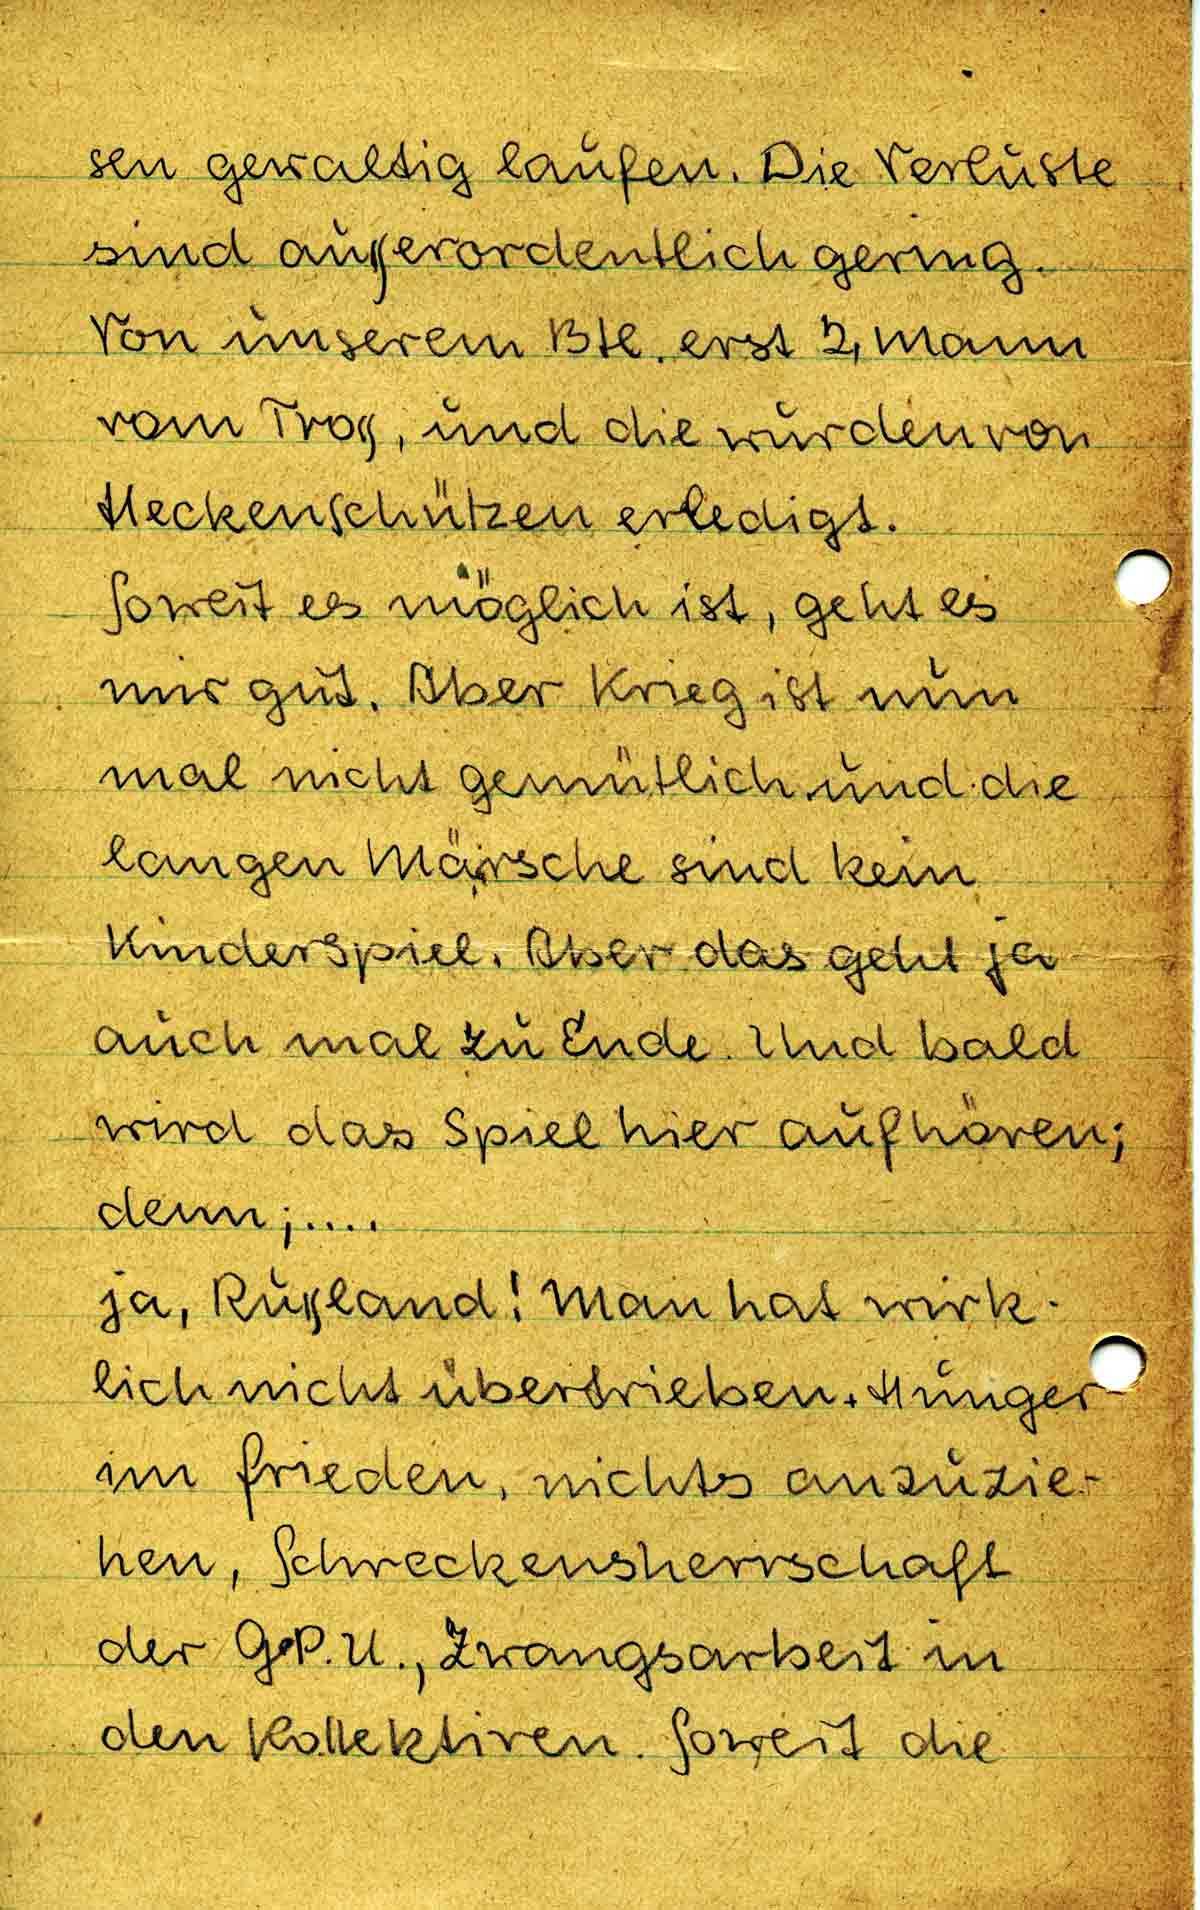 sen gewaltig laufen. Die Verluste
sind außerordentlich gering.
Von unserem Btl. erst 2, Mann
vom Troß, und die wurden von
Heckenschützen erledigt.
Soweit es möglich ist, geht es
mir gut. Aber Krieg ist nun
mal nicht gemütlich und die
langen Märsche sind kein
Kinderspiel. Aber das geht ja
auch mal zu Ende. Und bald
wird das Spiel hier aufhören;
denn;....
ja, Rußland! Man hat wirk-
lich nicht übertrieben. Hunger
im Frieden, nichts anzuzie-
hen, Schreckensherrschaft
der G.P.U., Zwangsarbeit in
den Kollektiven. Soweit die